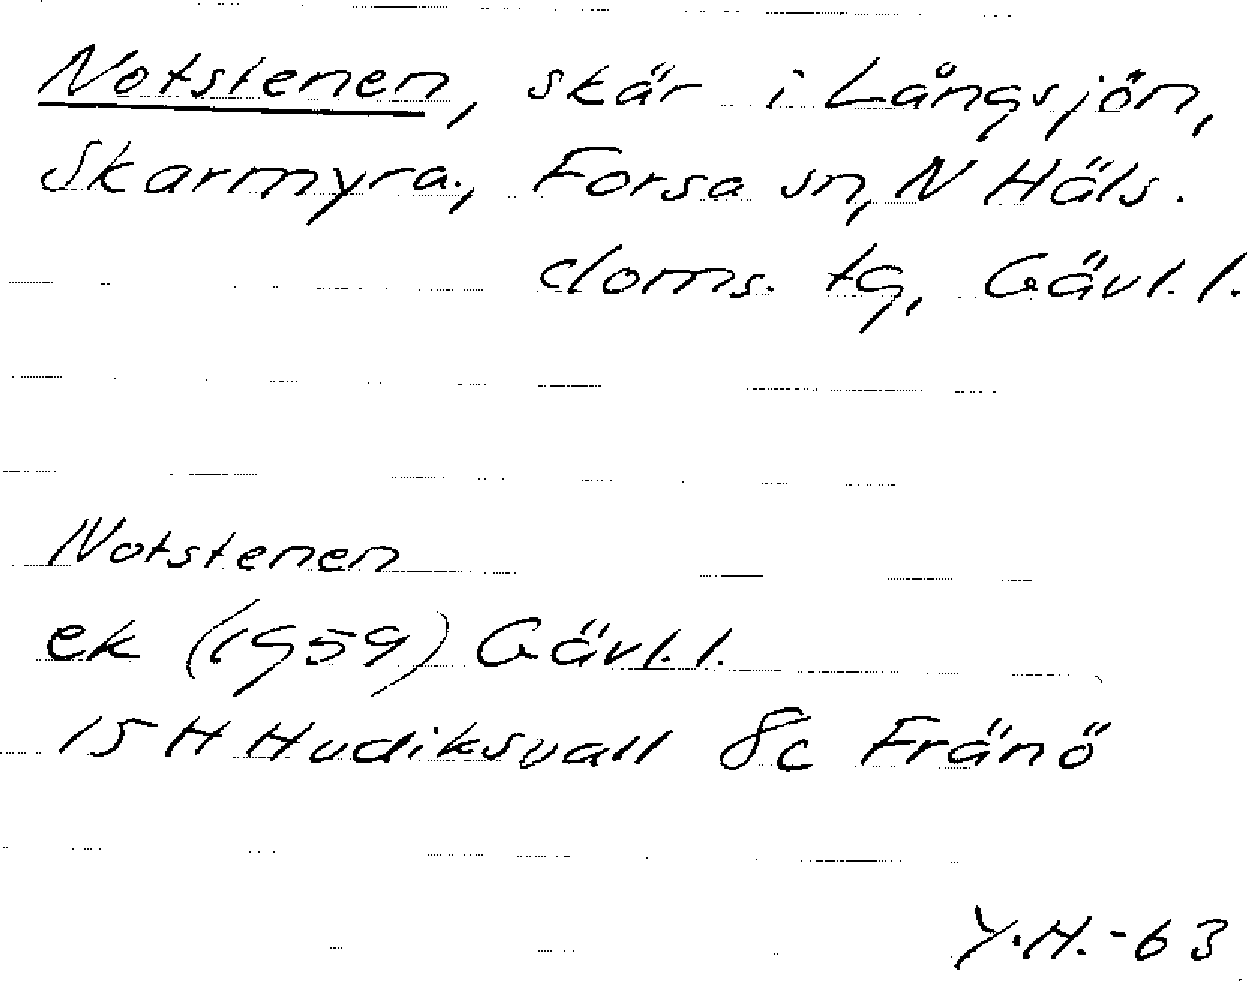 Notstenen, skär i Långsjön,
Skarmyra., Forsa sn, N Häls.
doms. tg, Gävl. l.
Notstenen
ek (1959) Gävl. l.
15 H Hudiksvall 8c Fränö
Y.H.-63